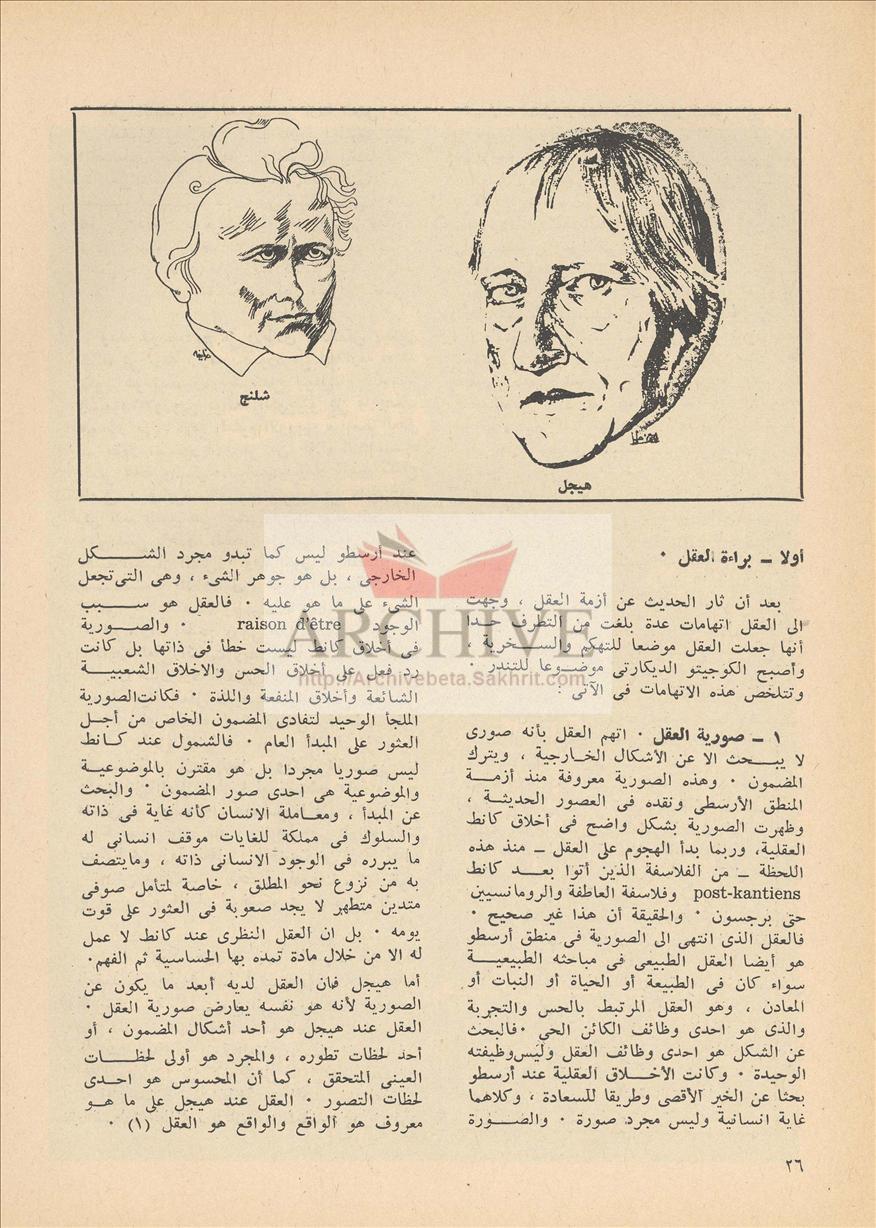 شلنج
هيجل
أولا ــ براءة العقل ٠
بعد أن ثار الحديث عن أزمة العقل ، وجهت
الى العقل اتهامات عدة بلغت من التطرف حدا
أنها جعلت العقل موضعا للتهكم والسخرية ،
وأصبح الكوجيتو الديكارتى موضوعا للتندر ٠
وتتلخص هذه الاتهامات فى الآتى :
١ ــ صورية العقل ٠ اتهم العقل بأنه صورى
لا يبحث الا عن الأشكال الخارجية ، ويترك
المضمون ٠ وهذه الصورية معروفة منذ أزمة
المنطق الأرسطى ونقده فى العصور الحديثة ،
وظهرت الصورية بشكل واضح فى أخلاق كانط
العقلية، وربما بدأ الهجوم على العقل ــ منذ هذه
اللحظة ــ من الفلاسفة الذين أتوا بعد كانط
post-kantiens وفلاسفة العاطفة والرومانسيين
حتى برجسون ٠ والحقيقة أن هذا غير صحيح ٠
فالعقل الذى انتهى الى الصورية فى منطق أرسطو
هو أيضا العقل الطبيعى فى مباحثه الطبيعية
سواء كان فى الطبيعة أو الحياة أو النبات أو
المعادن ، وهو العقل المرتبط بالحس والتجربة
والذى هو احدى وظائف الكائن الحى ٠ فالبحث
عن الشكل هو احدى وظائف العقل وليس وظيفته
الوحيدة ٠ وكانت الأخلاق العقلية عند أرسطو
بحثا عن الخير الأقصى وطريقا للسعادة ، وكلاهما
غاية انسانية وليس مجرد صورة ٠ والصورة
عند أرسطو ليس كما تبدو مجرد الشكل
الخارجى ، بل هو جوهر الشىء ، وهى التى تجعل
الشىء على ما هو عليه ٠ فالعقل هو سبب
الوجود raison d'être ٠ والصورية
فى أخلاق كانط ليست خطأ فى ذاتها بل كانت
رد فعل على أخلاق الحس والاخلاق الشعبية
الشائعة وأخلاق المنفعة واللذة ٠ فكانت الصورية
الملجأ الوحيد لتفادى المضمون الخاص من أجل
العثور على المبدأ العام ٠ فالشمول عند كانط
ليس صوريا مجردا بل هو مقترن بالموضوعية
والموضوعية هى احدى صور المضمون ٠ والبحث
عن المبدأ ، ومعاملة الانسان كأنه غاية فى ذاته
والسلوك فى مملكة للغايات موقف انسانى له
ما يبرره فى الوجود الانسانى ذاته ، ومايتصف
به من نزوع نحو المطلق ، خاصة لمتأمل صوفى
متدين متطهر لا يجد صعوبة فى العثور على قوت
يومه ٠ بل ان العقل النظرى عند كانط لا عمل
له الا من خلال مادة تمده بها الحساسية ثم الفهم٠
أما هيجل فان العقل لديه أبعد ما يكون عن
الصورية لأنه هو نفسه يعارض صورية العقل ٠
العقل عند هيجل هو أحد أشكال المضمون ، أو
أحد لحظات تطوره ، والمجرد هو أولى لحظات
العينى المتحقق ، كما أن المحسوس هو احدى
لحظات التصور ٠ العقل عند هيجل على ما هو
معروف هو الواقع والواقع هو العقل (١) ٠
٢٦
ARCHIVE
http://Archivebeta.Sakhrit.com